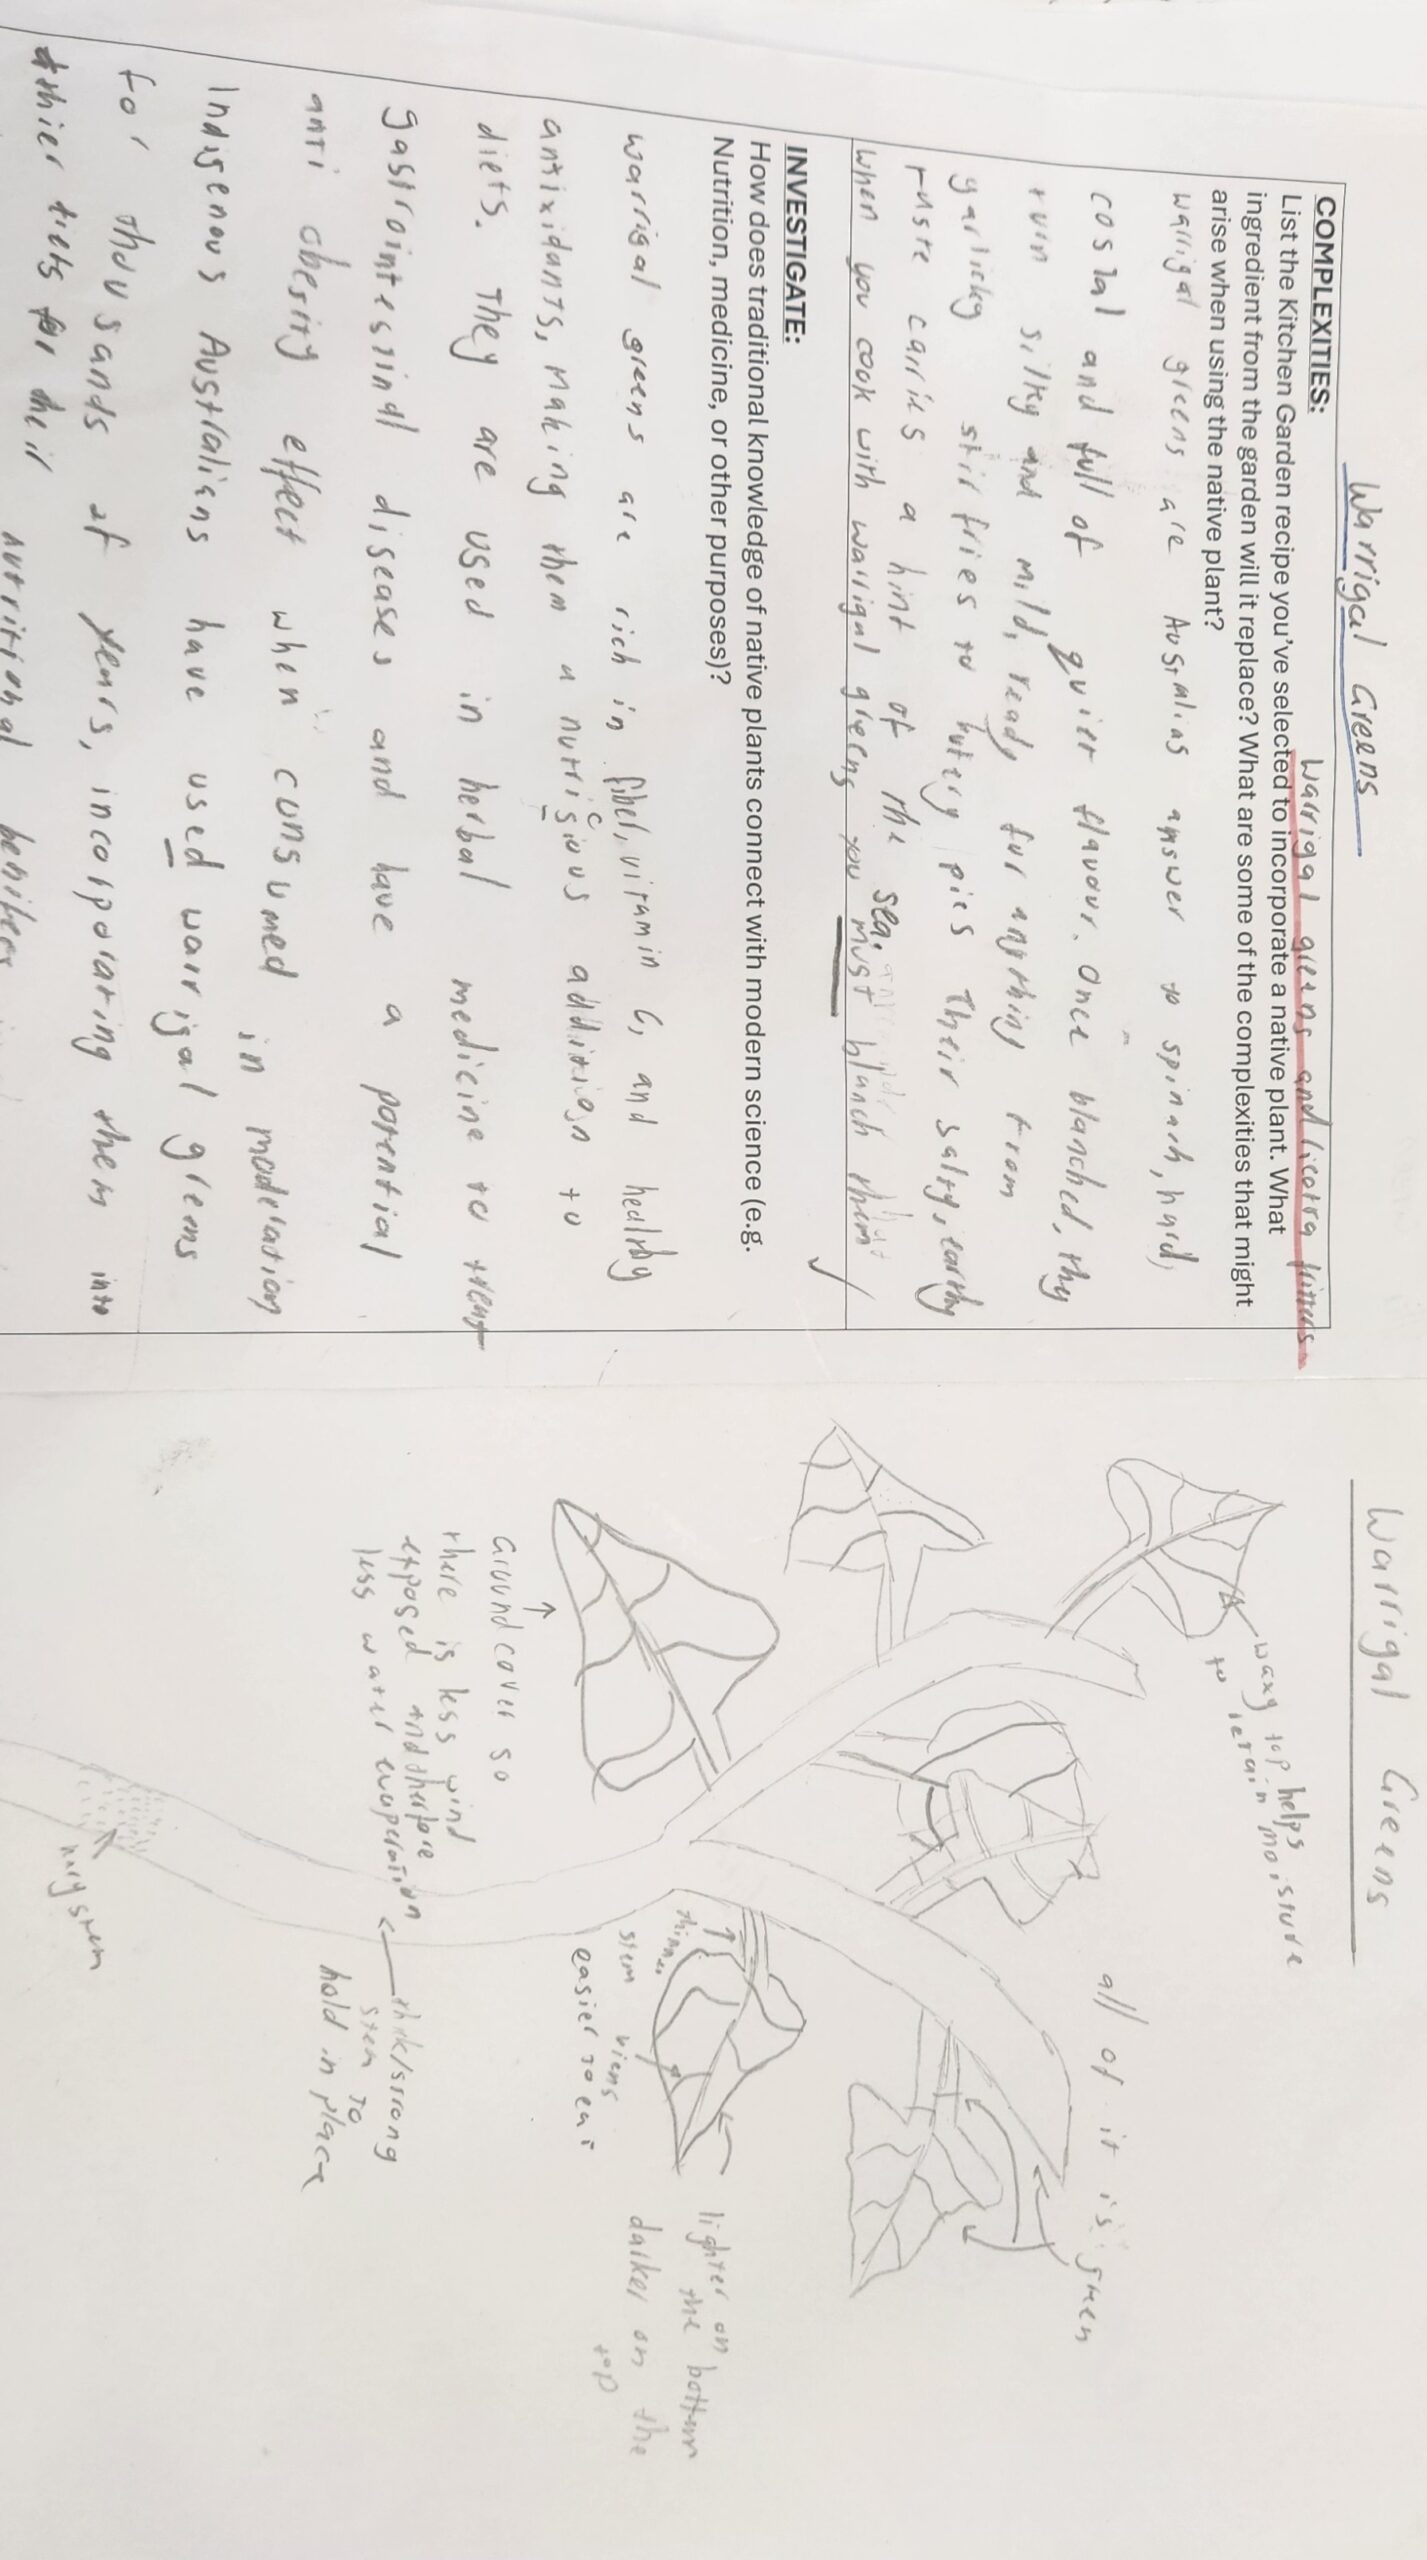 Warrigal Greens
warrigal greens and licotta fritters
COMPLEXITIES:
List the Kitchen Garden recipe you've selected to incorporate a native plant. What
ingredient from the garden will it replace? What are some of the complexities that might
arise when using the native plant?
warrigal greens are Australias answer to spinach, hard,
costal and full of quiet flavour. Once blanched, they
turn silky and mild, ready for anything from
garlicky stir fries to buttery pies Their salty, earthy
taste carries a hint of the sea.
When you cook with warrigal greens you must blanch them
INVESTIGATE:
How does traditional knowledge of native plants connect with modern science (e.g.
Nutrition, medicine, or other purposes)?
warrigal greens are rich in fiber, vitamin C, and healthy
antixidants, making them a nutrisious addition to
c
diets. They are used in herbal medicine to treat
gastrointestinal diseases and have a potential
anti obesity effect when consumed in moderation
Indigenous Australians have used warrigal greens
for thousands of years, incorporating them into
thier diets for their
nutritional
Warrigal Greens
waxy top helps
to retain moisture
all of it is green
lighter on
the bottom
darker on the
top
thinner
stem viens
easier to eat
Ground cover so
there is less wind
exposed and therfore
less water evaperation
thick/strong
stem to
hold in place
hairy stem